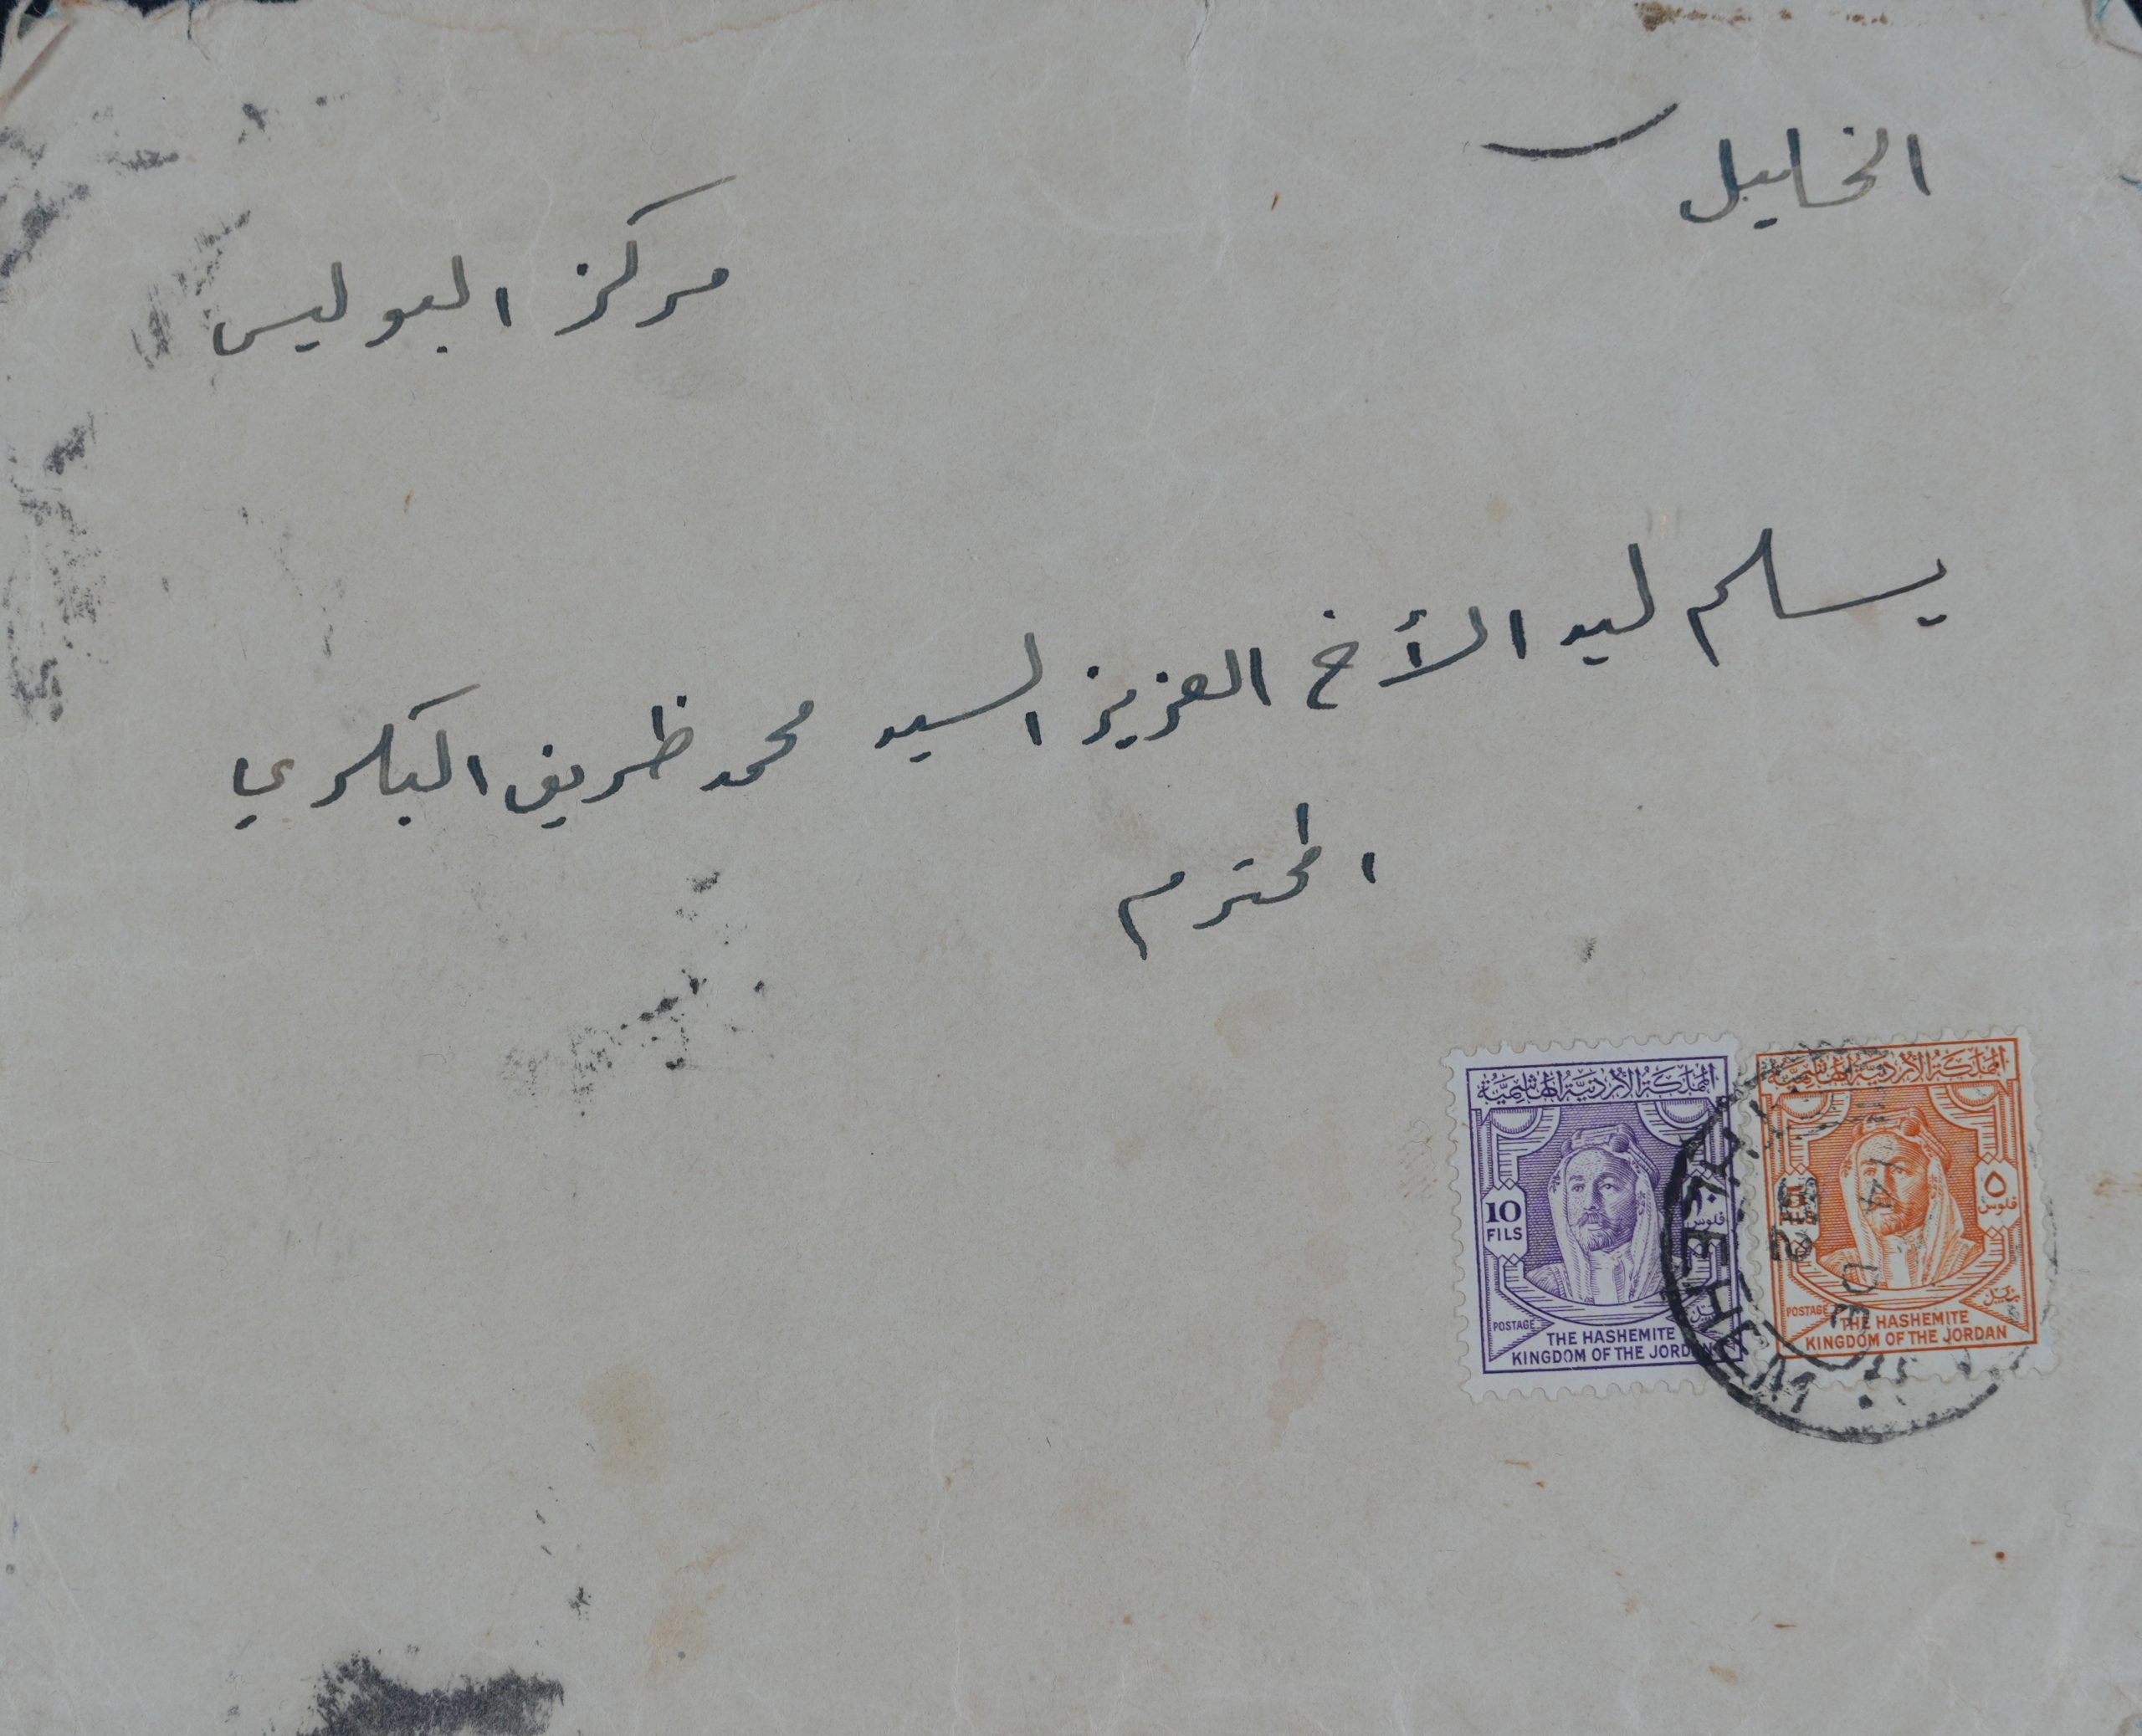 الخليل
مركز البوليس
يسلم ليد الأخ العزيز السيد محمد ظريف البكري
المحترم
المملكة الأردنية الهاشمية
10
FILS
فلوس
POSTAGE
THE HASHEMITE
KINGDOM OF THE JORDAN
المملكة الأردنية الهاشمية
5
FILS
٥
فلوس
POSTAGE
THE HASHEMITE
KINGDOM OF THE JORDAN
BETHLEHEM
14 DE
52